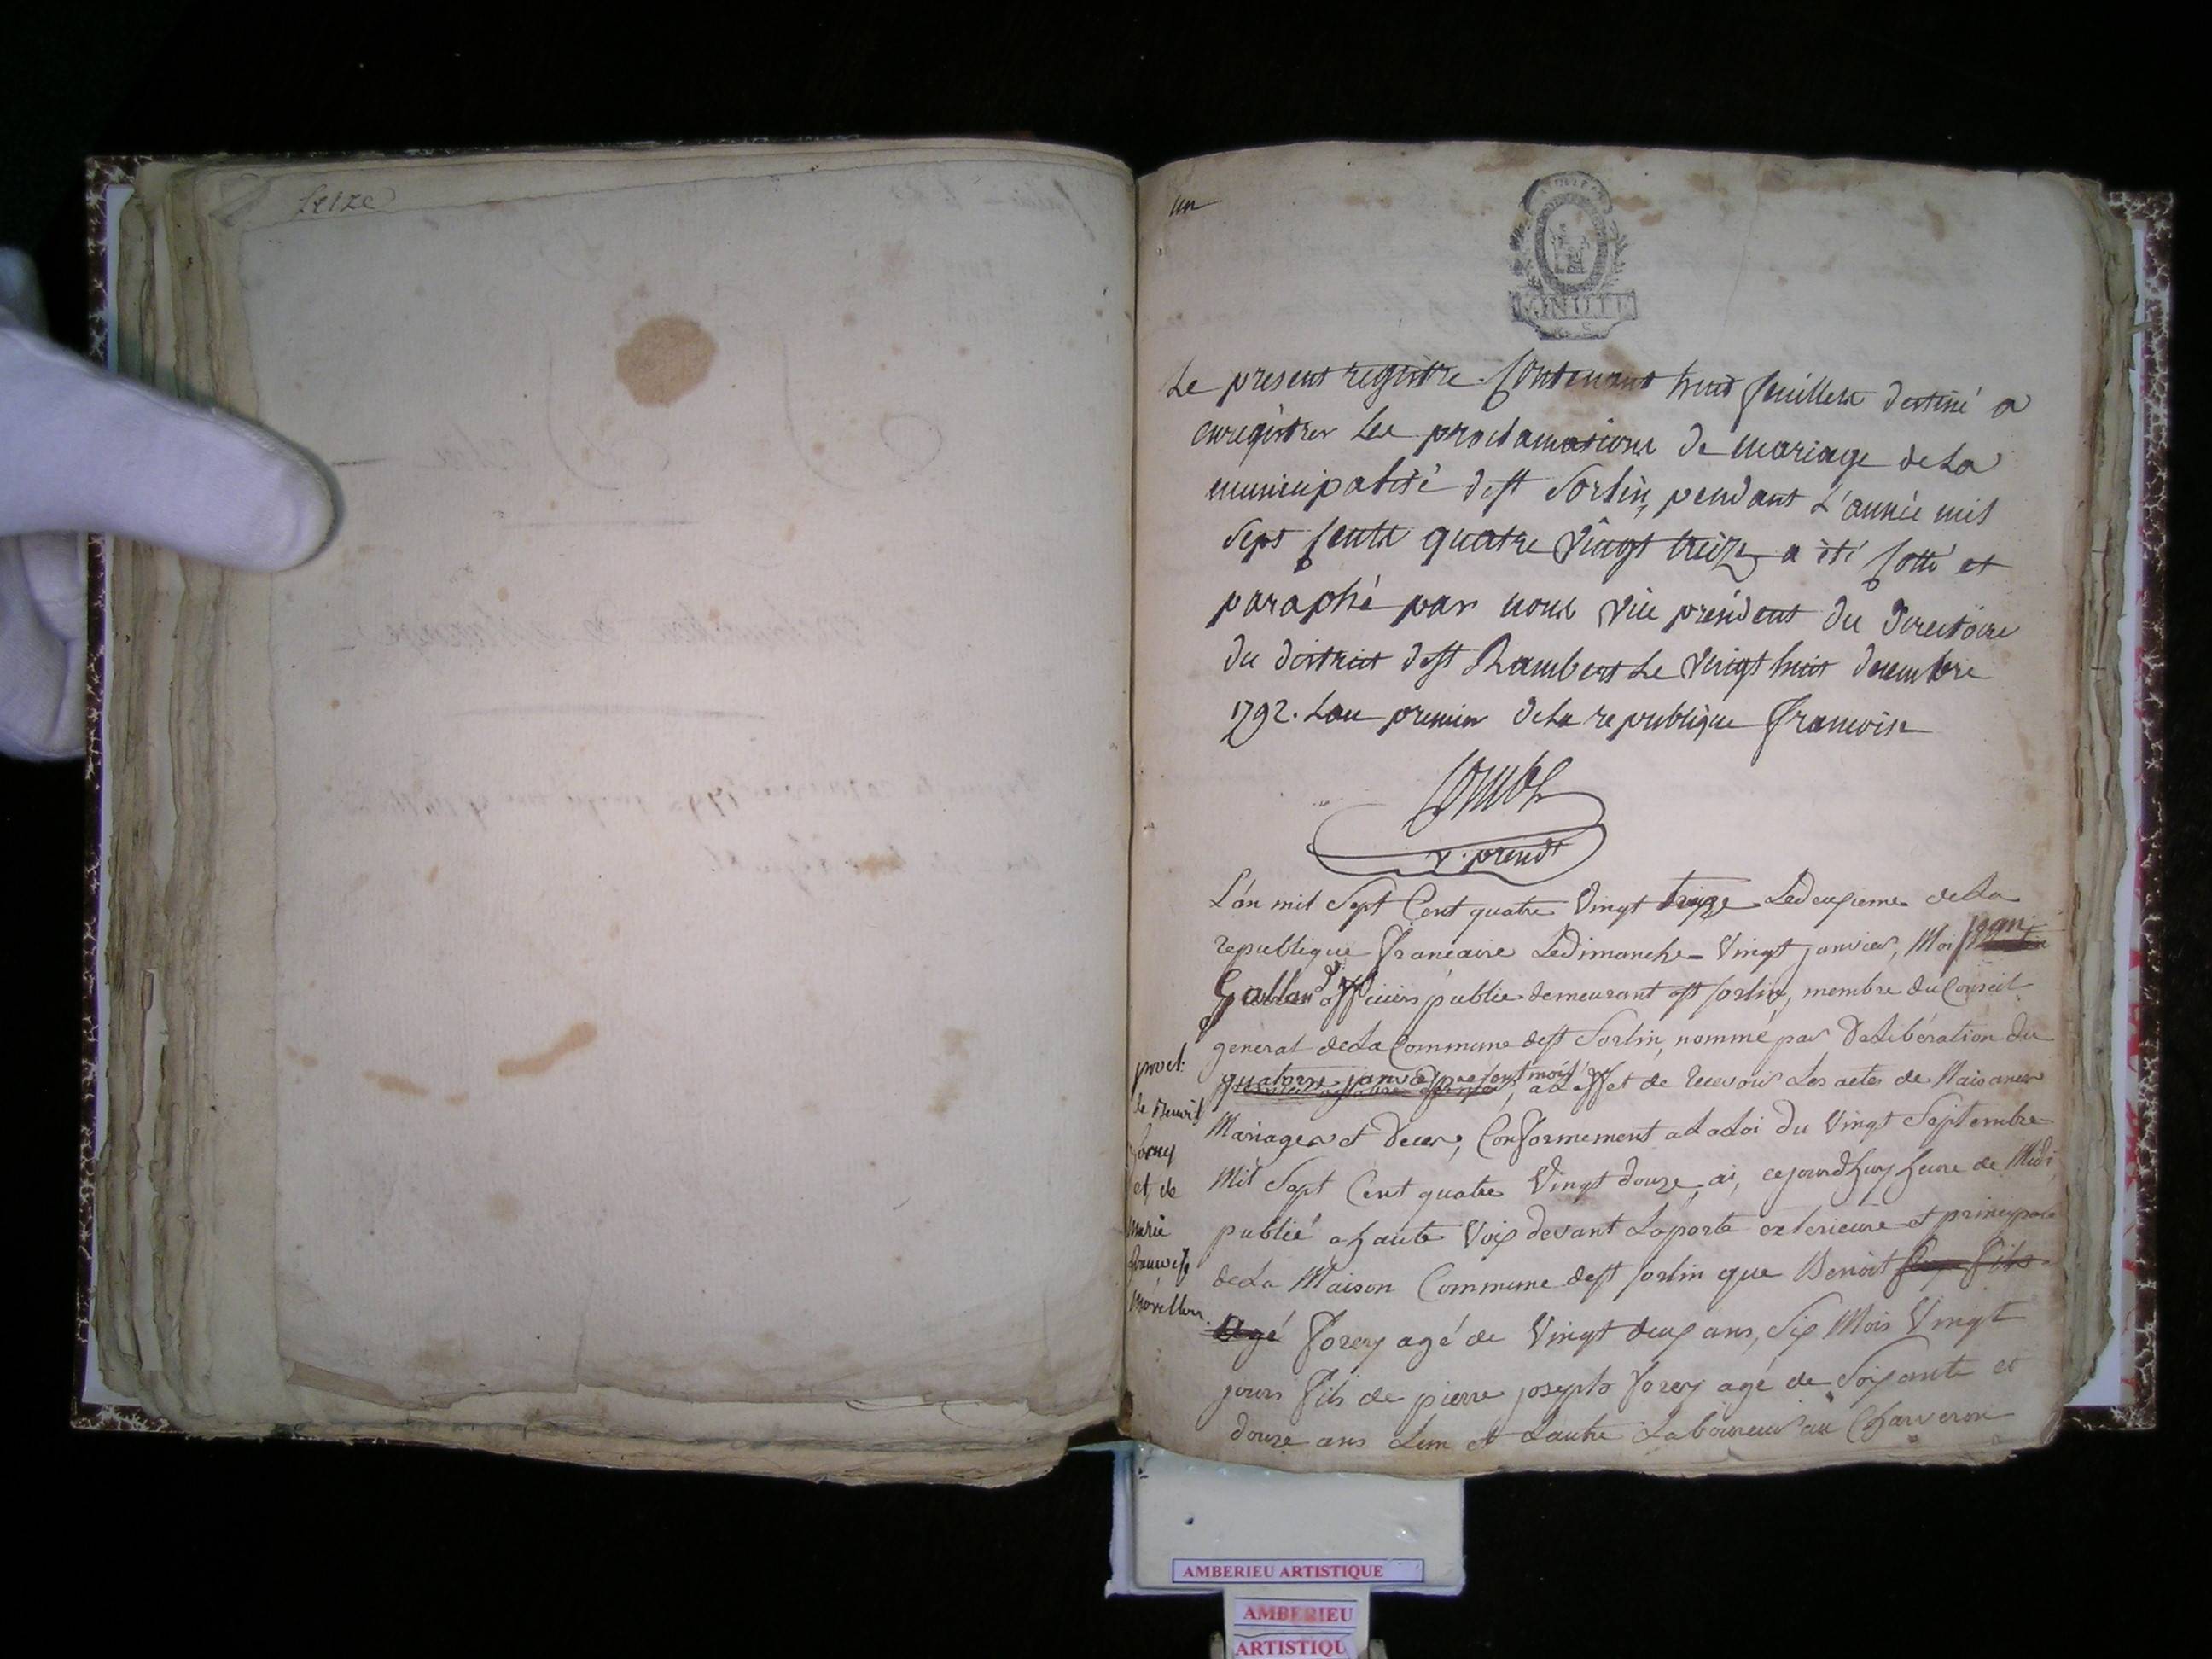 seize
un
MINUTE
Le present registre Contenant huit feuillets destiné a
enregistrer les proclamations de mariage de La
municipalité de St Sorlin, pendant L'année mil
Sept Cents quatre Vingt treize a été Cotté et
paraphé par nous Vice président du Directoire
du district de St Rambert Le Vingt huit decembre
1792. Lan premier de La republique francoise
v. presidt
L'an mil Sept Cent quatre Vingt treize Le deuxieme de La
republique francaise Le dimanche Vingt janvier, Moi Jean
Galland officier public demeurant a St Sorlin, membre du Conseil
general de La Commune de St Sorlin, nommé par Deliberation du
quatorze janvier present mois, a L'effet de recevoir Les actes de Naisances
Mariages et Deces, Conformement a La Loi du Vingt Septembre
Mil Sept Cent quatre Vingt douze, ai, cejourdhuy heure de Midi
publié a haute Voix devant La porte exterieure et principale
de La Maison Commune de St Sorlin que Benoit
Forey agé de Vingt deux ans, Six Mois Vingt
jours fils de pierre joseph Forey agé de Soixante et
douze ans Lun et Lautre Laboureur au Charveron
procl.
de Benoit
forey
et de
marie
francoise
AMBERIEU ARTISTIQUE
AMBERIEU
ARTISTIQU